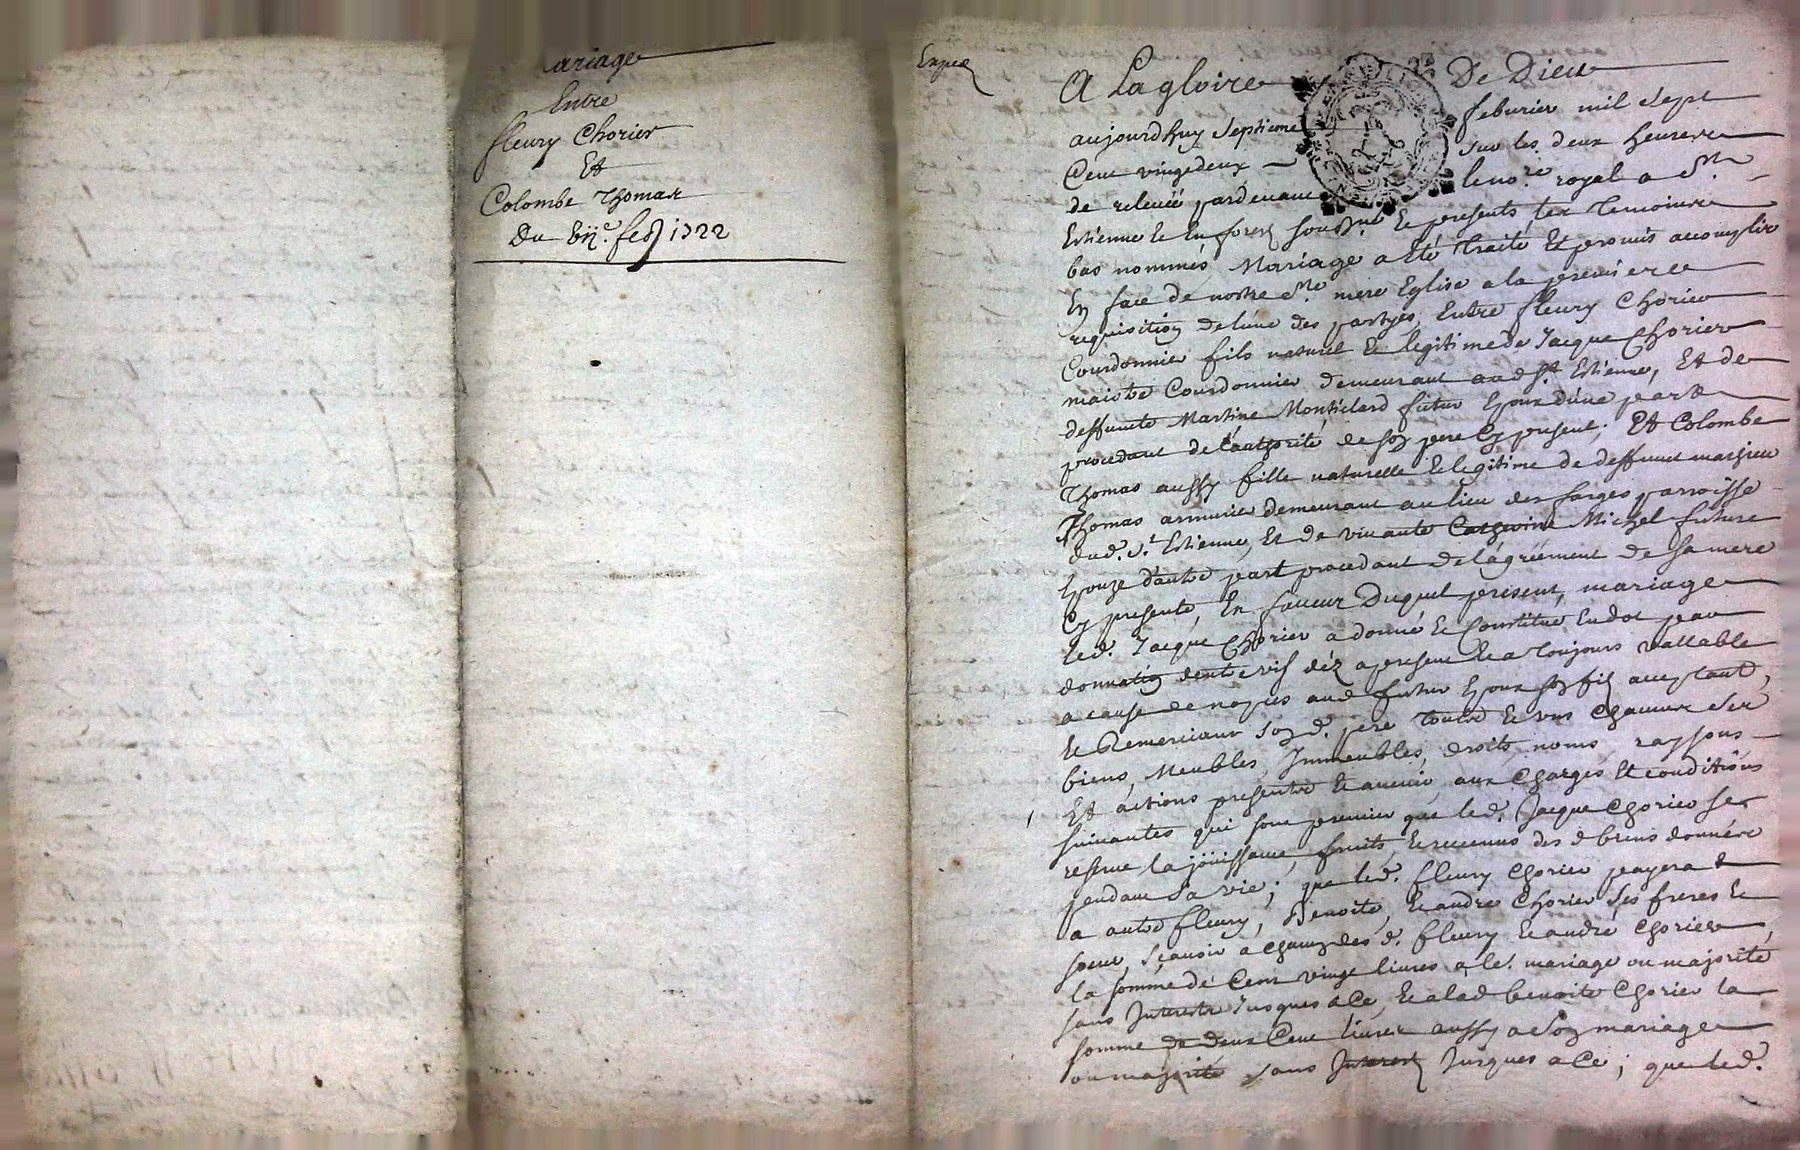 ariage
Entre
fleury Chorier
Et
Colombe Thomas
Du vije. feb 1722
Expée
A La gloire De Dieu
aujourdhuy septieme feburier mil sept
Cent vingt deux sur les deux heures
de relevée pardevant le nore. royal a St.
Estienne En forest soubzné. Et presents les Temoins
bas nommes Mariage a Eté Traité Et promis accomplir
En face de nostre Ste. mere Eglise a la premiere
requisition de lune des partyes, Entre fleury Chorier
Courdonnier fils naturel Et legitime de Jacque Chorier
maistre Courdonnier demeurant aud St. Estienne, Et de
deffunte Martine Montelard futur Epoux d'une part
procedant de l'authorité de son pere Cy present; Et Colombe
Thomas aussy fille naturelle Et legitime de deffunt mathieu
Thomas armurier demeurant au lieu des forges parroisse
dud. St. Estienne, Et de vivante Catherine Michel future
Epouze dautre part procedant de l'agreement de sa mere
Cy presente, En faveur Duquel present, mariage
led. Jacque Chorier a donné Et Constitué En dot par
donnation dentre vifs déz apresent Et a Toujours vallable
a cause de nopces aud futur Epoux son fils acceptant,
Et Remerciant sond. pere Toutes Et uns Chacuns ses
biens, Meubles, Immeubles, droits, noms, raysons
Et actions presents Et avenir, aux Charges Et conditions
suivantes qui sont premier que led. Jacque Chorier se
reserve la joüissance, fruits, Et revenus des d biens donnés
pendant sa vie; que led. fleury Chorier payera
a autre fleury, Benoite, Et andré Chorier ses freres Et
soeur, sçavoir a Chacun des d. fleury Et andré Chorier,
la somme de Cent vingt livres a le. mariage ou majorité
sans Interests Jusques a Ce, Et a lad benoite Chorier la
somme de deux Cent livres aussy a son mariage
ou majorité sans Interest Jusques a Ce; que led.